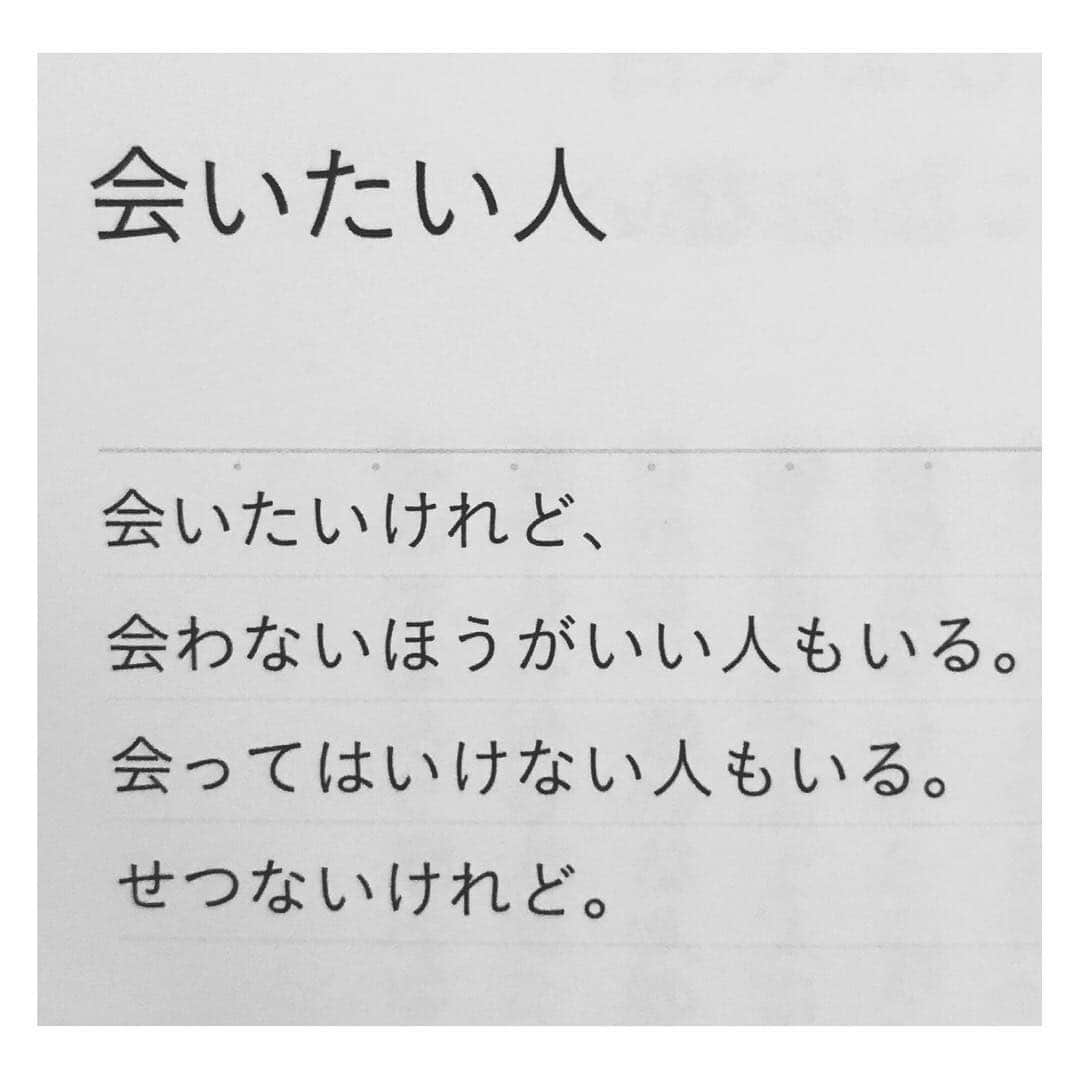 会いたい人
会いたいけれど、
会わないほうがいい人もいる。
会ってはいけない人もいる。
せつないけれど。